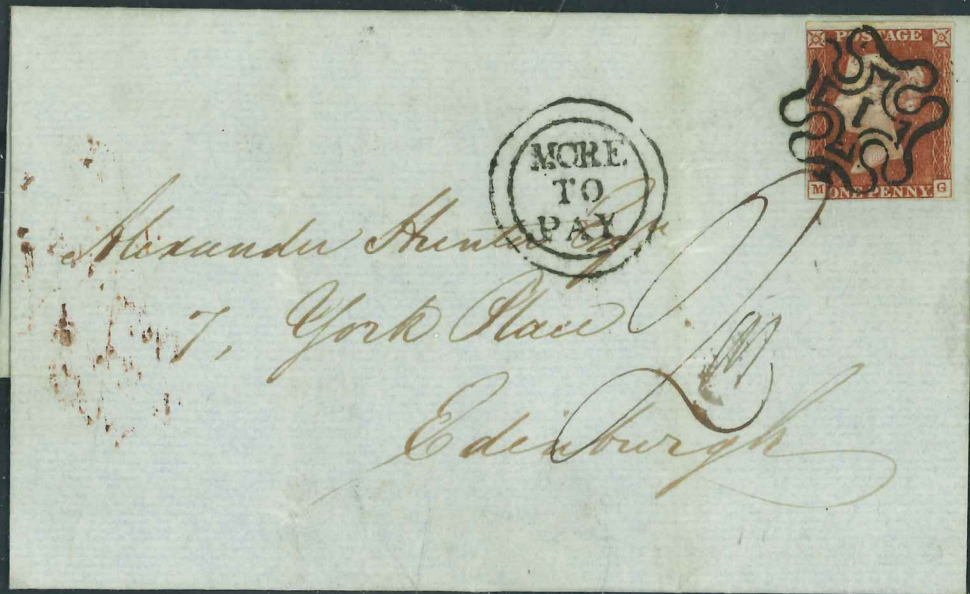 POSTAGE
1
M ONE PENNY G
MORE
TO
PAY
Alexander Hunter Esqr
7, York Place
Edinburgh